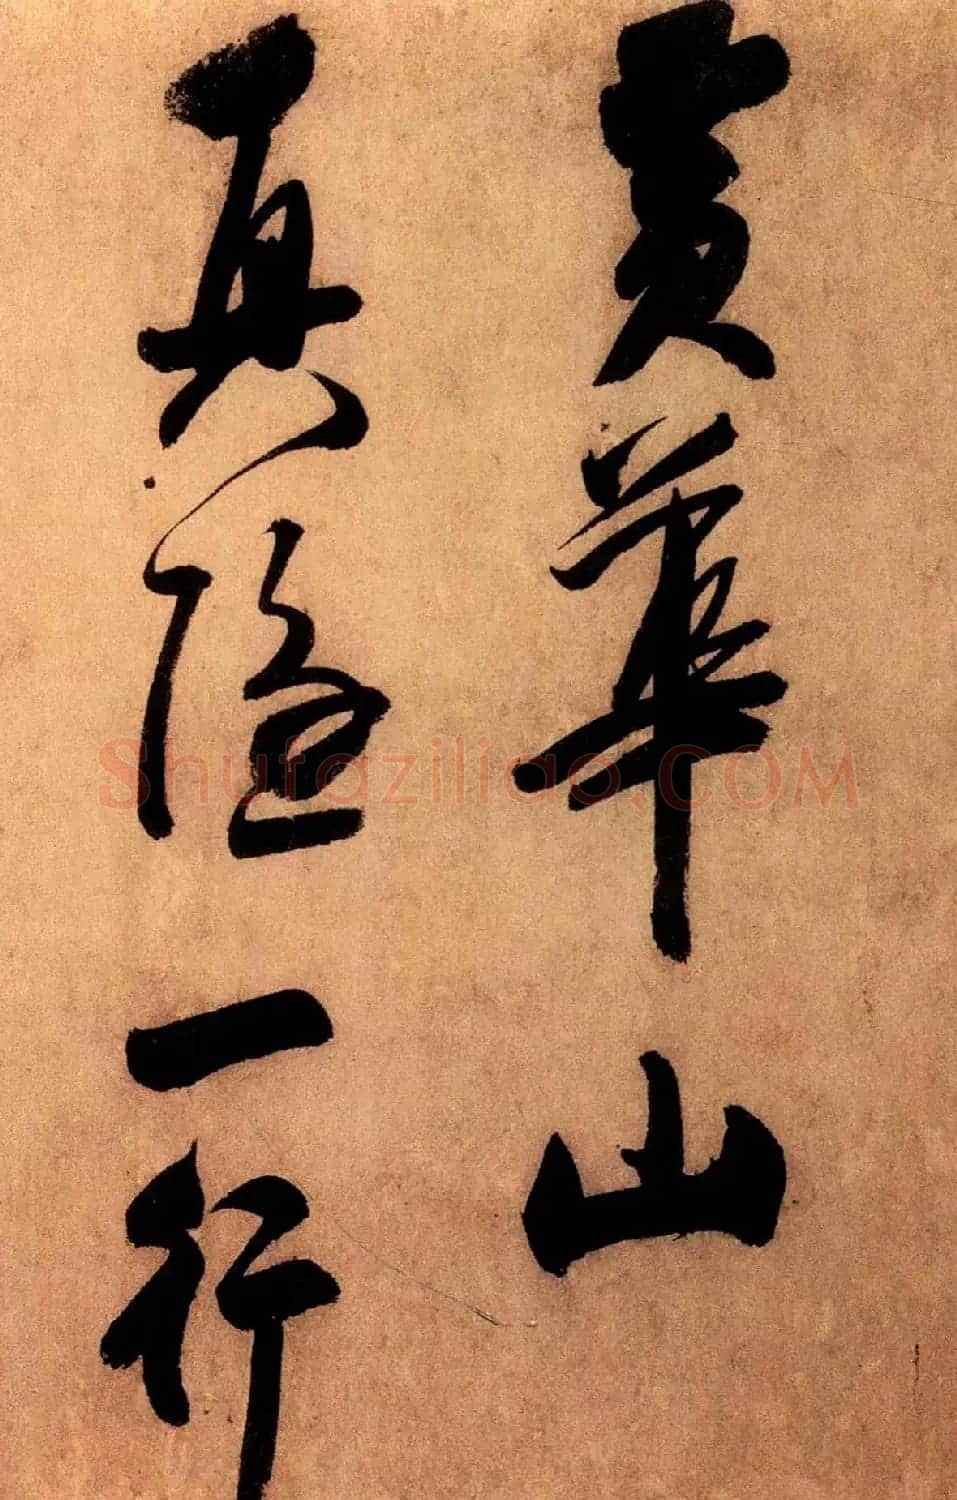 黄華山
真隱一行
Shufaziliao.COM